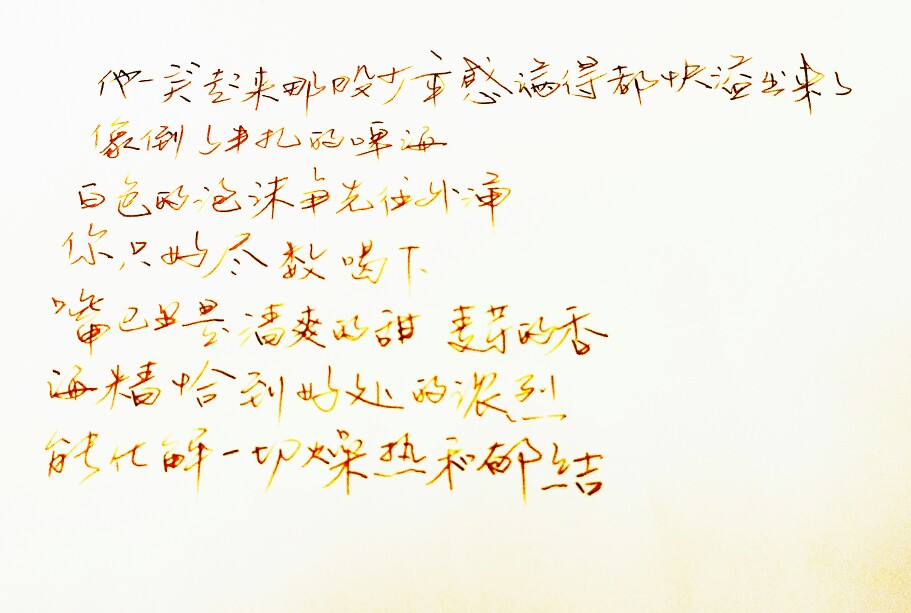 他一笑起来那股少年感满得都快溢出来了
像倒了半扎的啤酒
白色的泡沫争先往外涌
你只好尽数喝下
嘴巴里是清爽的甜 麦芽的香
酒精恰到好处的浓烈
能化解一切燥热和郁结